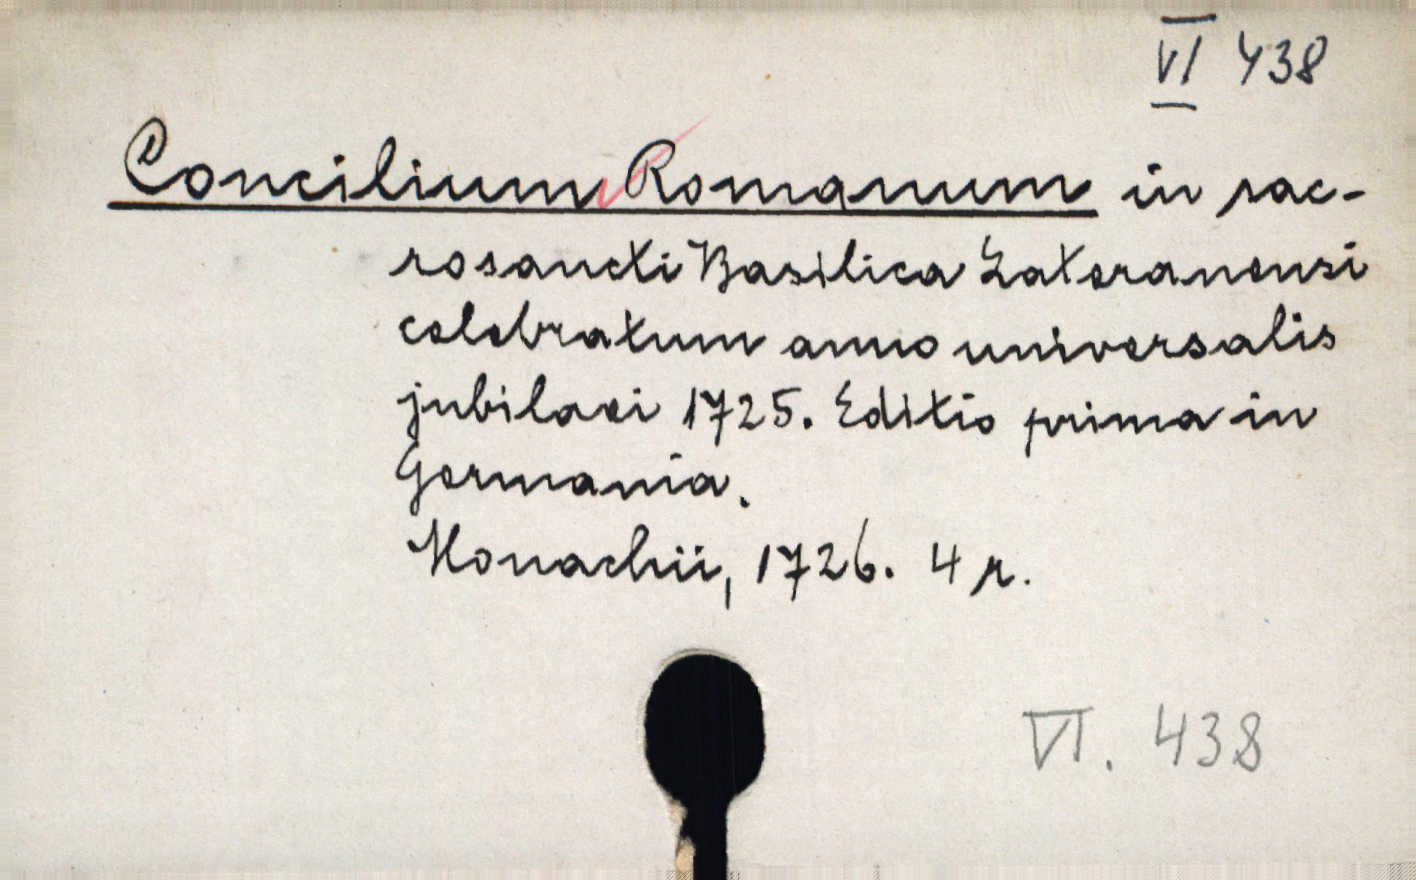 VI 438
Concilium Romanum in sac-
rosancti Basilica Lateranensi
celebratum anno universalis
jubilaei 1725. Editio prima in
Germania.
Monachii, 1726. 4 r.
VI. 438